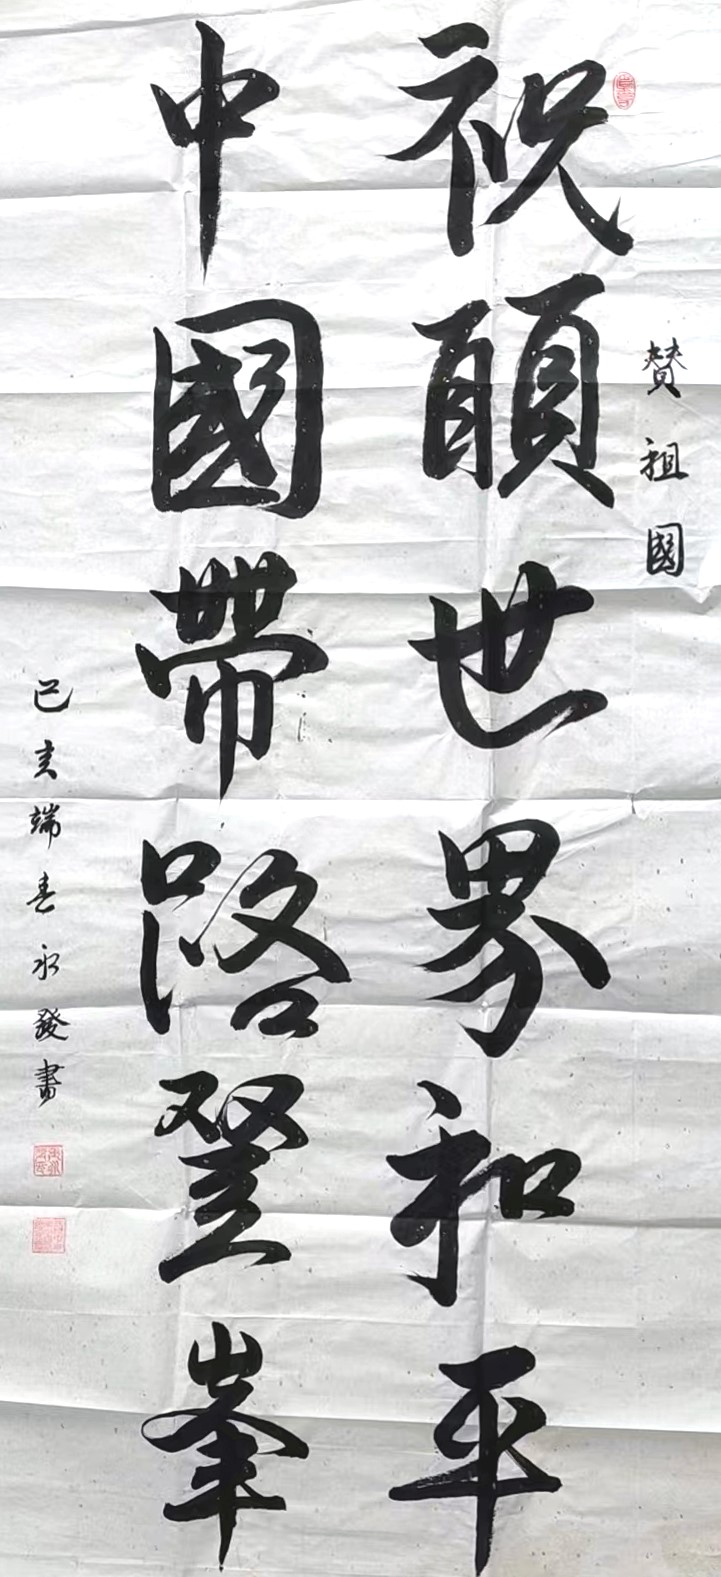 贊祖國
祝願世界和平
中國帶路登峯
己亥端春永發書